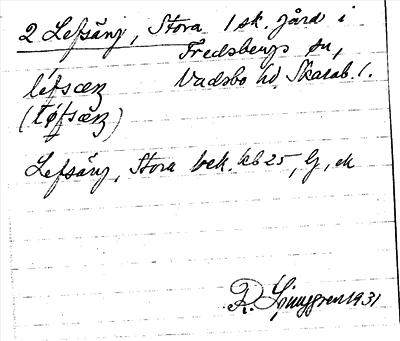 2 Lefsäng, Stora 1 sk. gård i
Fredsbergs sn,
Vadsbo hd. Skarab. l.
lefsæŋ
(løfsæŋ)
Lefsäng, Stora bek. kb 25, G, ek
R. Ljunggren 1931